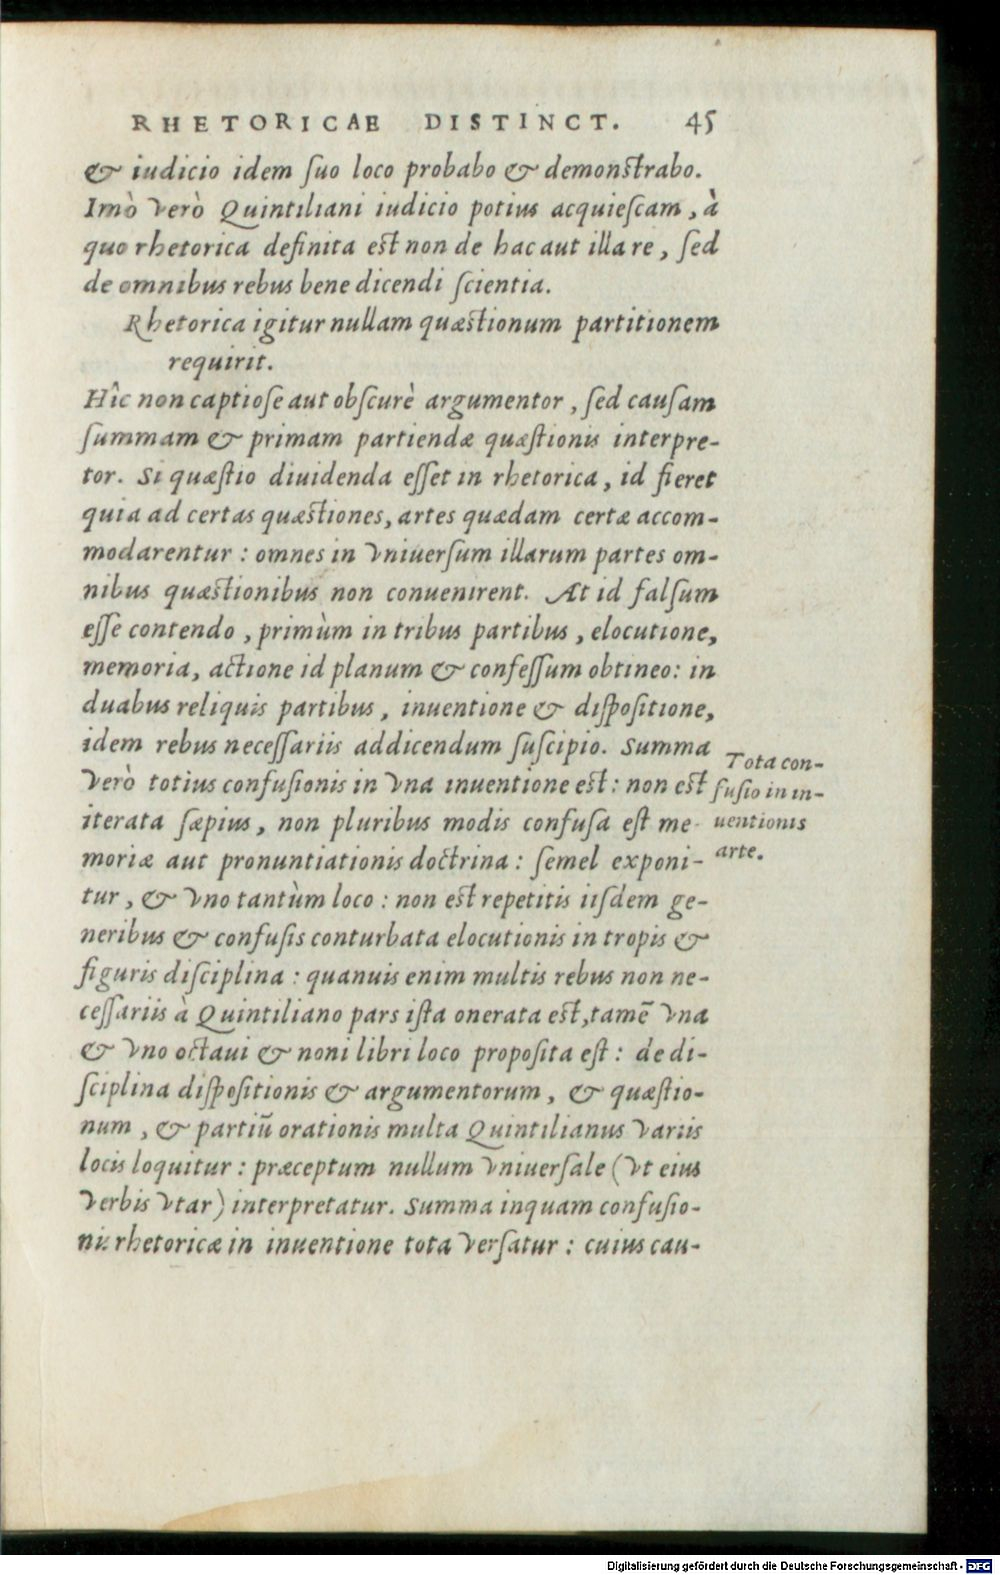 RHETORICAE DISTINCT. 45
& iudicio idem ſuo loco probabo & demonſtrabo.
Imò verò Quintiliani iudicio potius acquieſcam, à
quo rhetorica definita eſt non de hac aut illa re, ſed
de omnibus rebus bene dicendi ſcientia.
Rhetorica igitur nullam quæſtionum partitionem
requirit.
Hîc non captioſe aut obſcurè argumentor, ſed cauſam
ſummam & primam partiendæ quæſtionis interpre-
tor. Si quæſtio diuidenda eſſet in rhetorica, id fieret
quia ad certas quæſtiones, artes quædam certæ accom-
modarentur: omnes in vniuerſum illarum partes om-
nibus quæſtionibus non conuenirent. At id falſum
eſſe contendo, primùm in tribus partibus, elocutione,
memoria, actione id planum & confeſſum obtineo: in
duabus reliquis partibus, inuentione & diſpoſitione,
idem rebus neceſſariis addicendum ſuſcipio. Summa
verò totius confuſionis in vna inuentione eſt: non eſt
iterata ſæpius, non pluribus modis confuſa eſt me-
moriæ aut pronuntiationis doctrina: ſemel exponi-
tur, & vno tantùm loco: non eſt repetitis iiſdem ge-
neribus & confuſis conturbata elocutionis in tropis &
figuris diſciplina: quanuis enim multis rebus non ne-
ceſſariis à Quintiliano pars iſta onerata eſt, tamē vna
& vno octaui & noni libri loco propoſita eſt: de di-
ſciplina diſpoſitionis & argumentorum, & quæſtio-
num, & partiū orationis multa Quintilianus variis
locis loquitur: præceptum nullum vniuerſale (vt eius
verbis vtar) interpretatur. Summa inquam confuſio-
nis rhetoricæ in inuentione tota verſatur: cuius cau-
Tota con-
fuſio in in-
uentionis
arte.
Digitalisierung gefördert durch die Deutsche Forschungsgemeinschaft - DFG